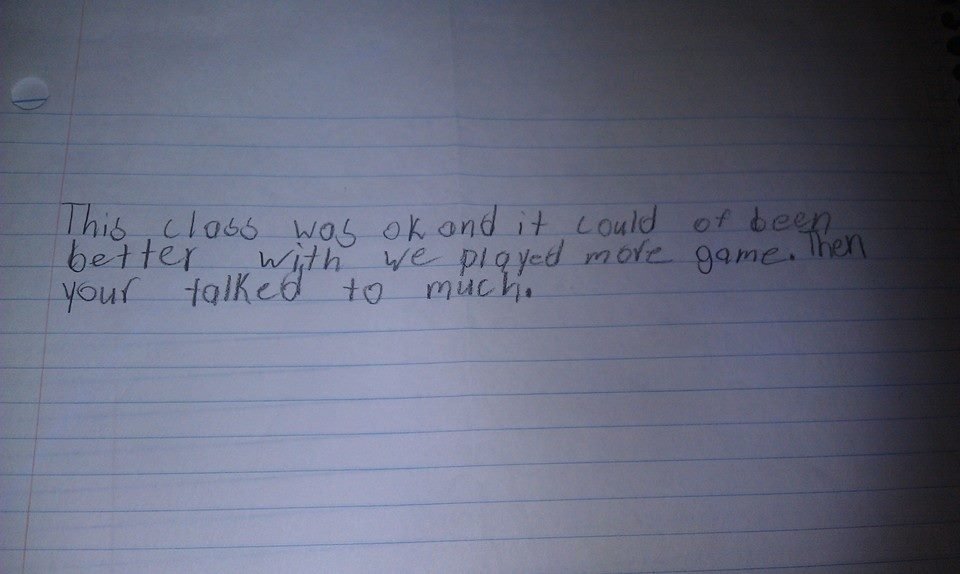 This class was ok and it could of been
better with we played more game. Then
your talked to much.